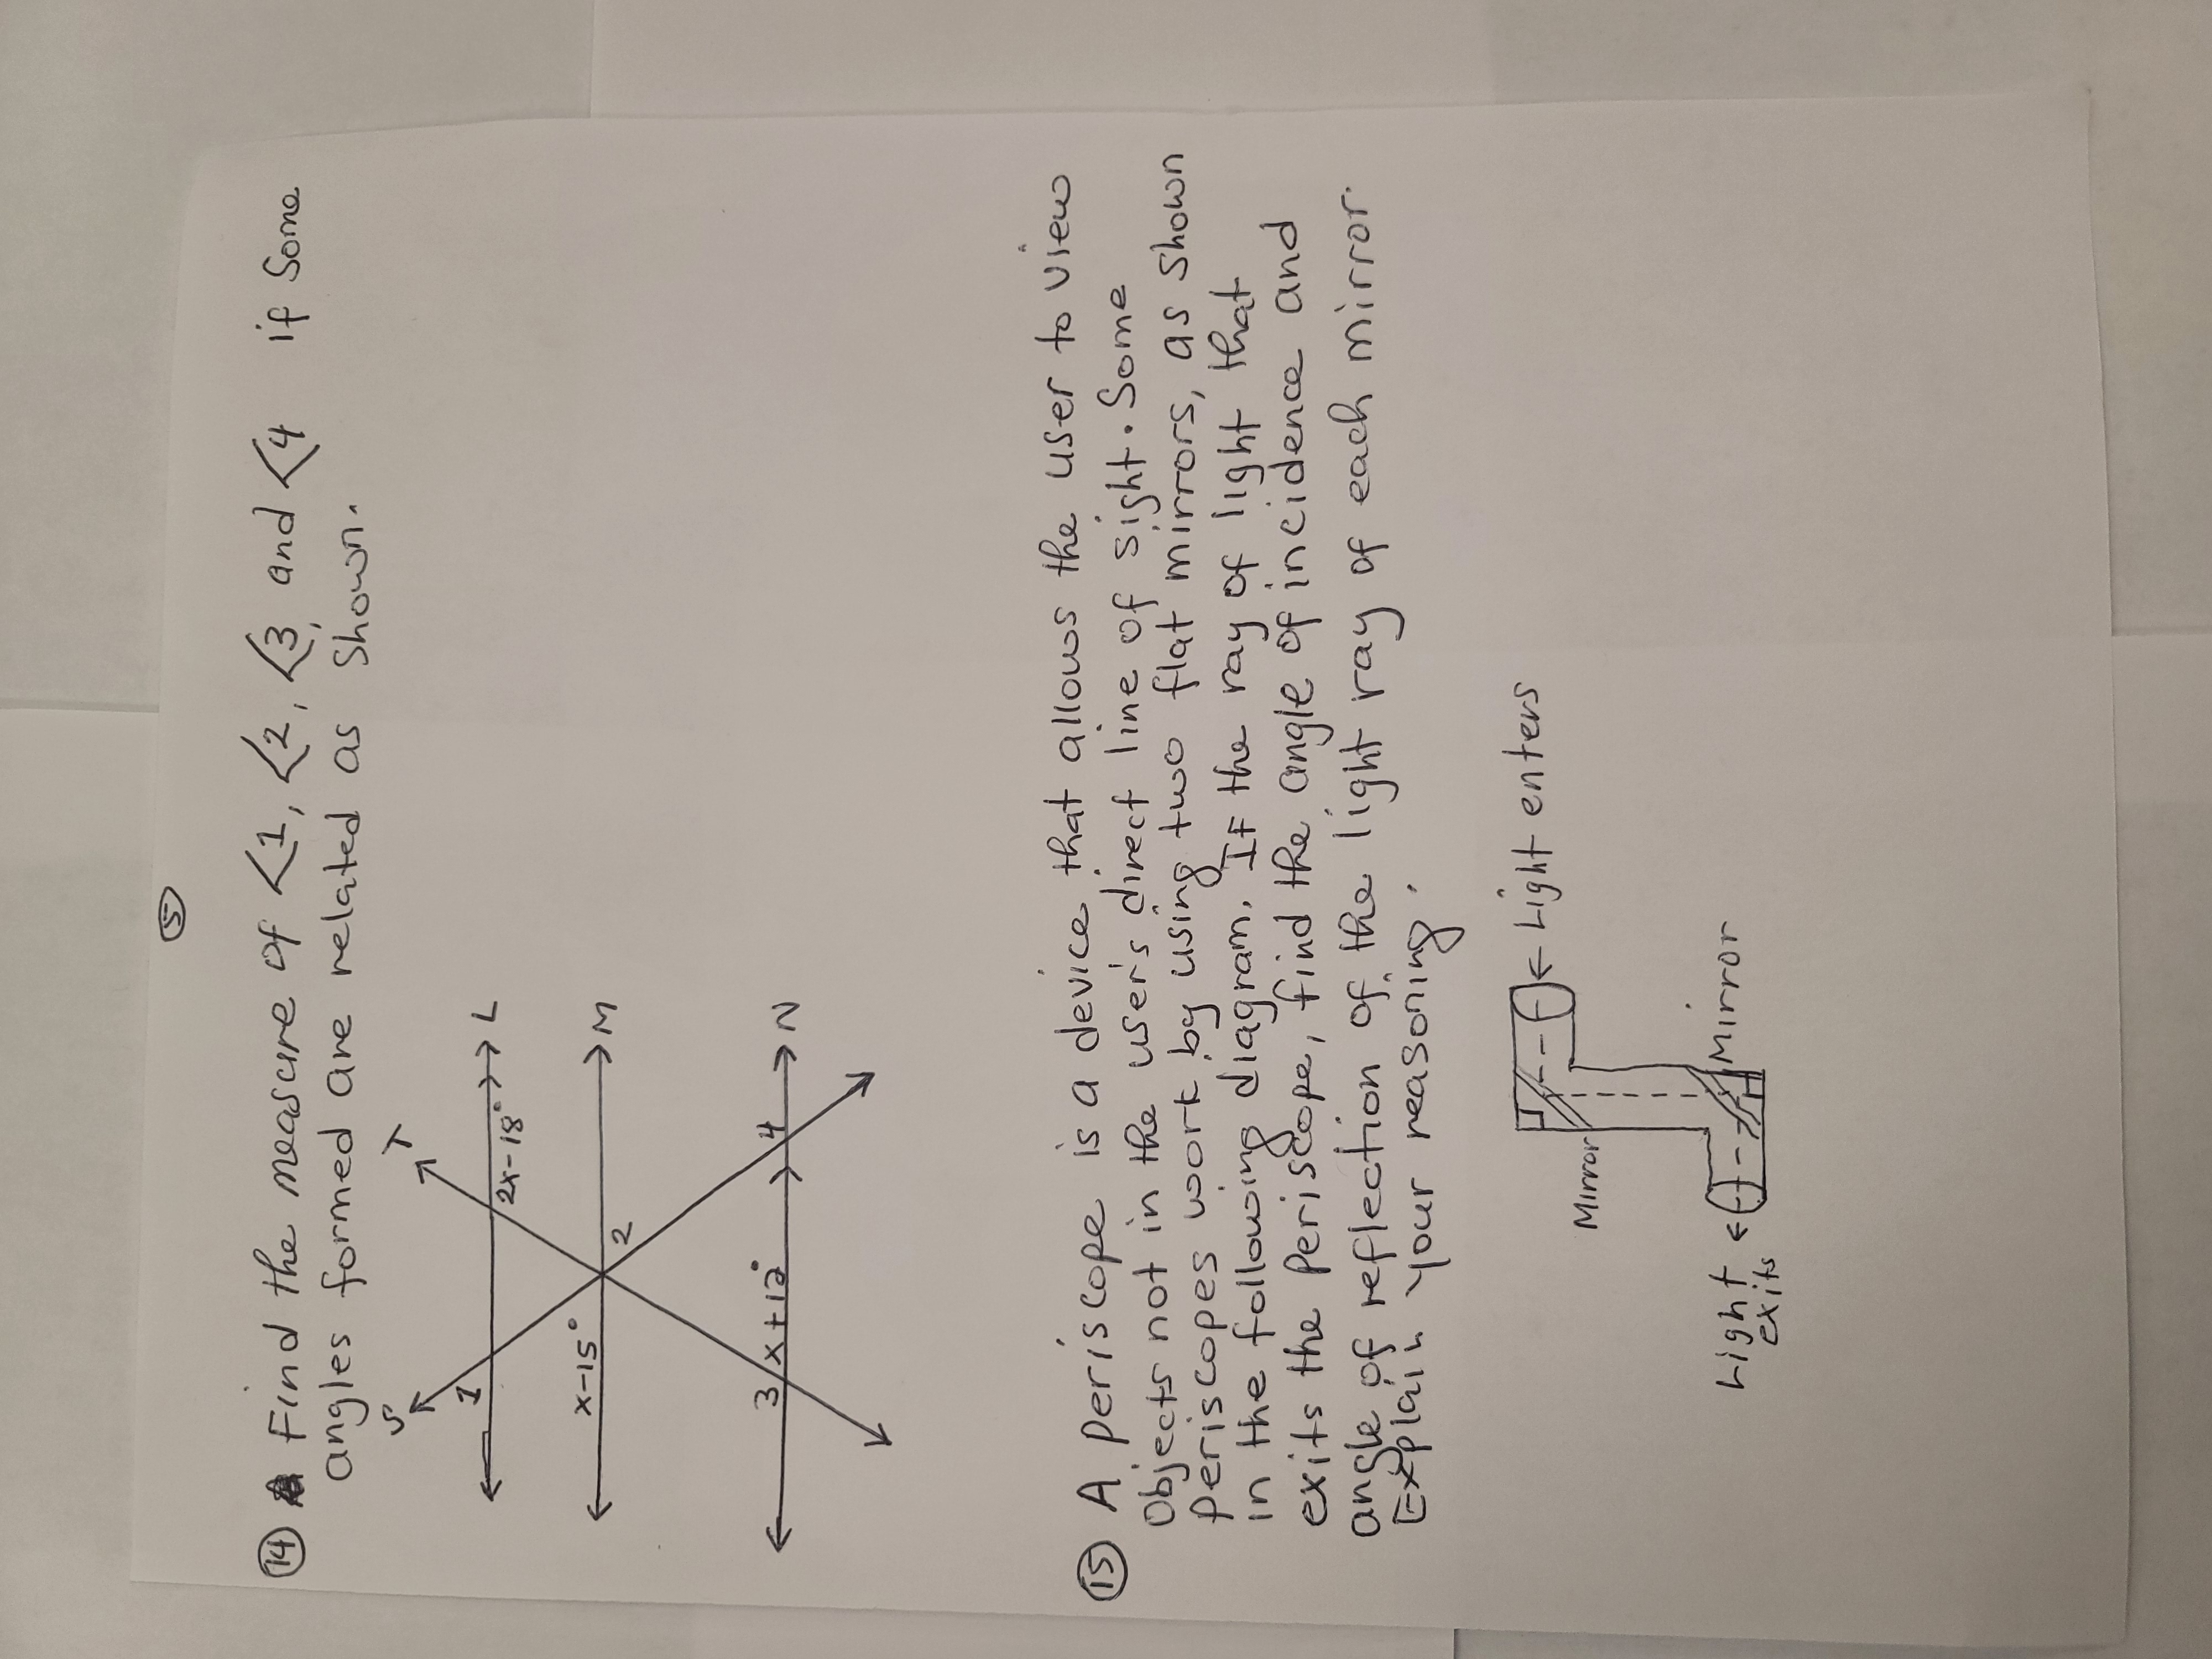 5
14 Find the measure of <1, <2, <3, and <4 if Some
angles formed are related as shown.
S T
1 2x-18° L
x-15° 2 M
3 x+12° 4 N
15 A periscope is a device that allows the user to view
Objects not in the user's direct line of sight. Some
periscopes work by using two flat mirrors, as shown
in the following diagram. If the ray of light that
exits the periscope, find the angle of incidence and
angle of reflection of the light ray of each mirror.
Explain your reasoning.
← Light enters
Mirror
Mirror
Light ←
exits